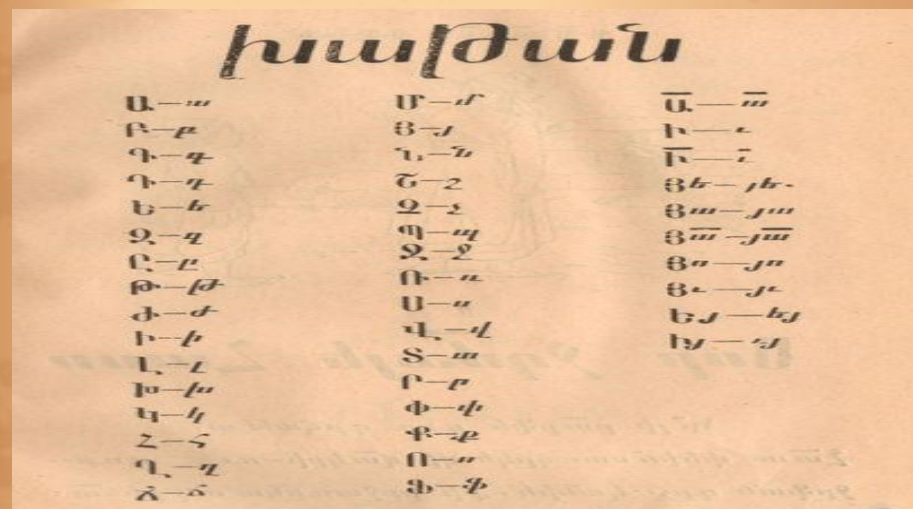 խաթան
Ա—ա
Բ—բ
Գ—գ
Դ—դ
Ե—ե
Զ—զ
Ը—ը
Թ—թ
Ժ—ժ
Ի—ի
Լ—լ
Խ—խ
Կ—կ
Հ—հ
Ղ—ղ
Ճ—ճ
Մ—մ
Յ—յ
Ն—ն
Շ—շ
Չ—չ
Պ—պ
Ջ—ջ
Ռ—ռ
Ս—ս
Վ—վ
Տ—տ
Ր—ր
Փ—փ
Ք—ք
Ո—ո
Ֆ—ֆ
Ա̄—ա̄
Ւ—ւ
Ւ̄—ւ̄
Յե—յե
Յա—յա
Յա̄—յա̄
Յո—յո
Յւ—յւ
Եյ—եյ